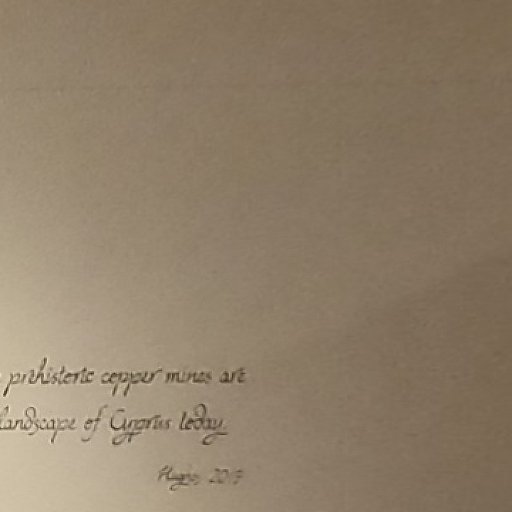 prehistoric copper mines are
landscape of Cyprus today.
2019